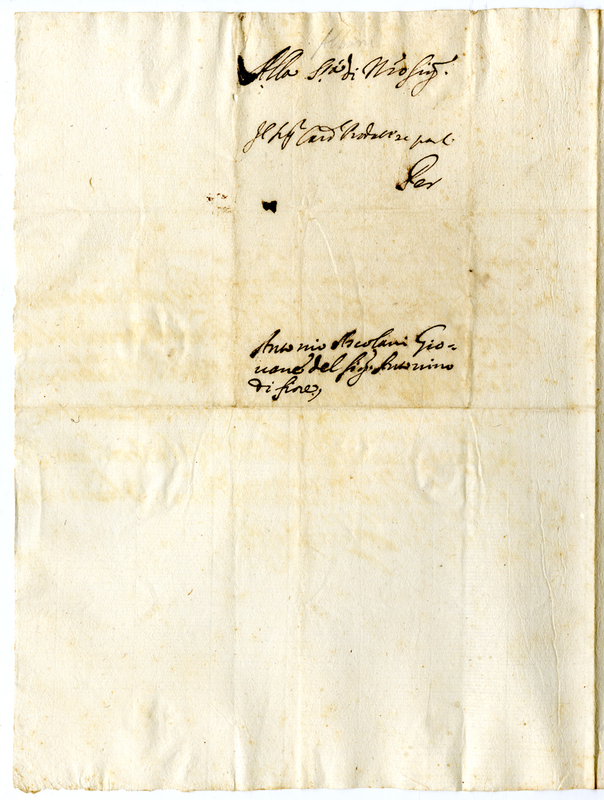 Alla S.tà di N'ro Sig.re
Il Sig.r Card.
Per
Antonio Ascolani Gio=
uane del sig.r Antonino
di fiore,